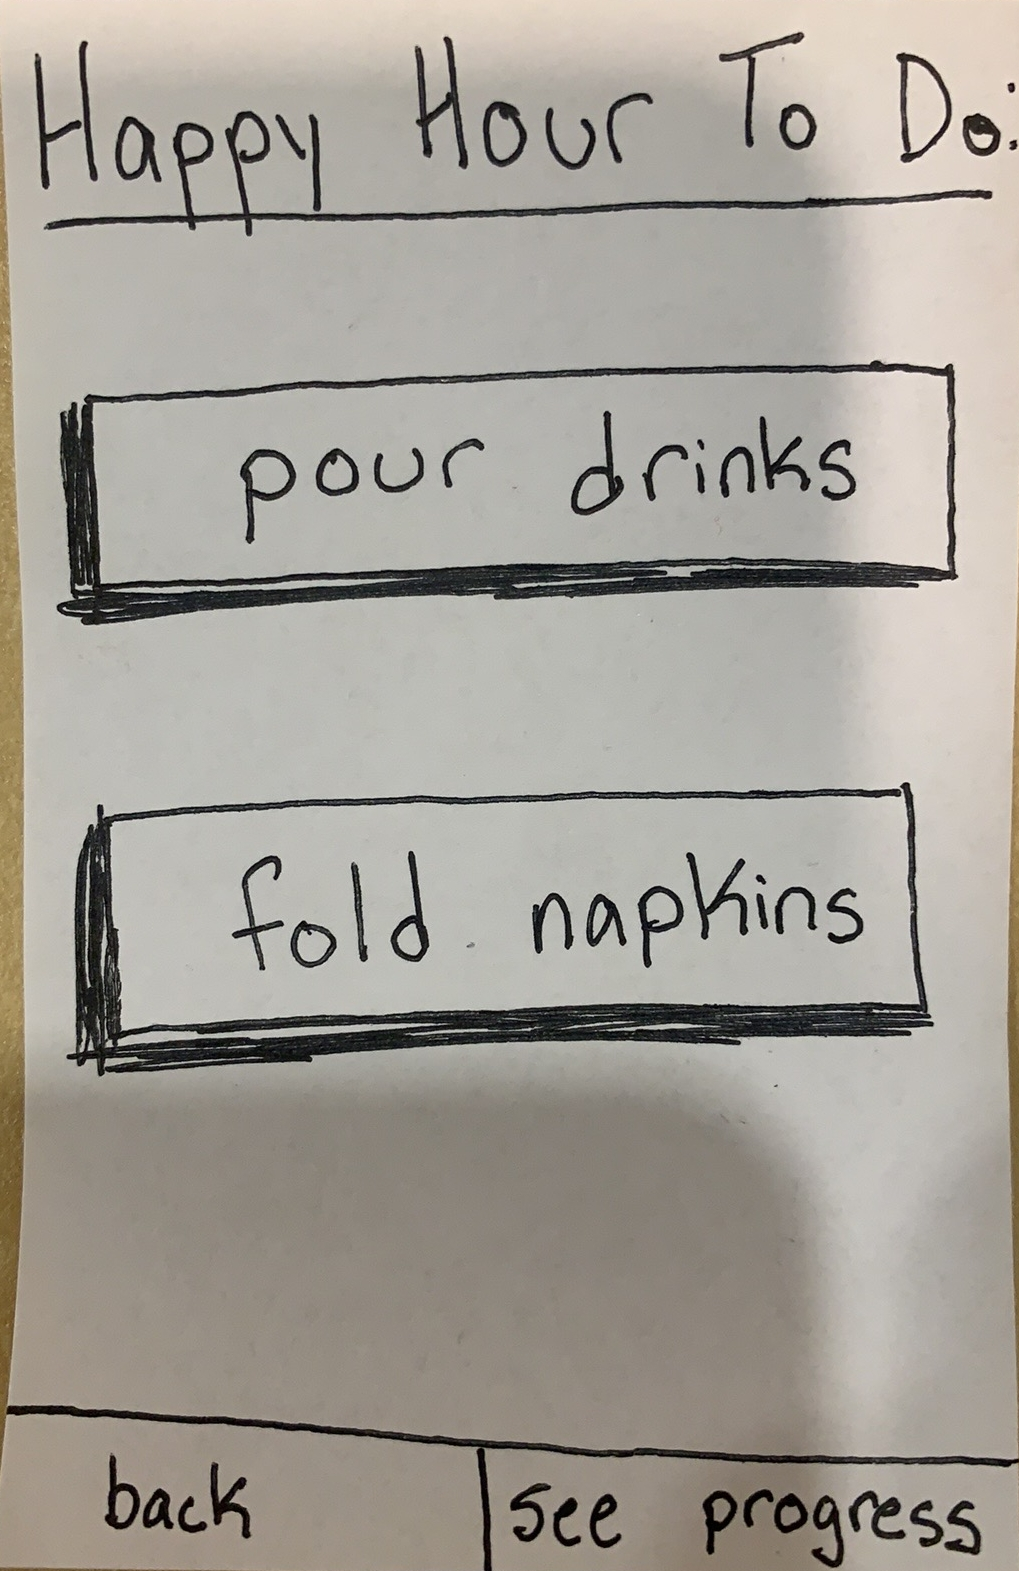 Happy Hour To Do:
pour drinks
fold napkins
back see progress